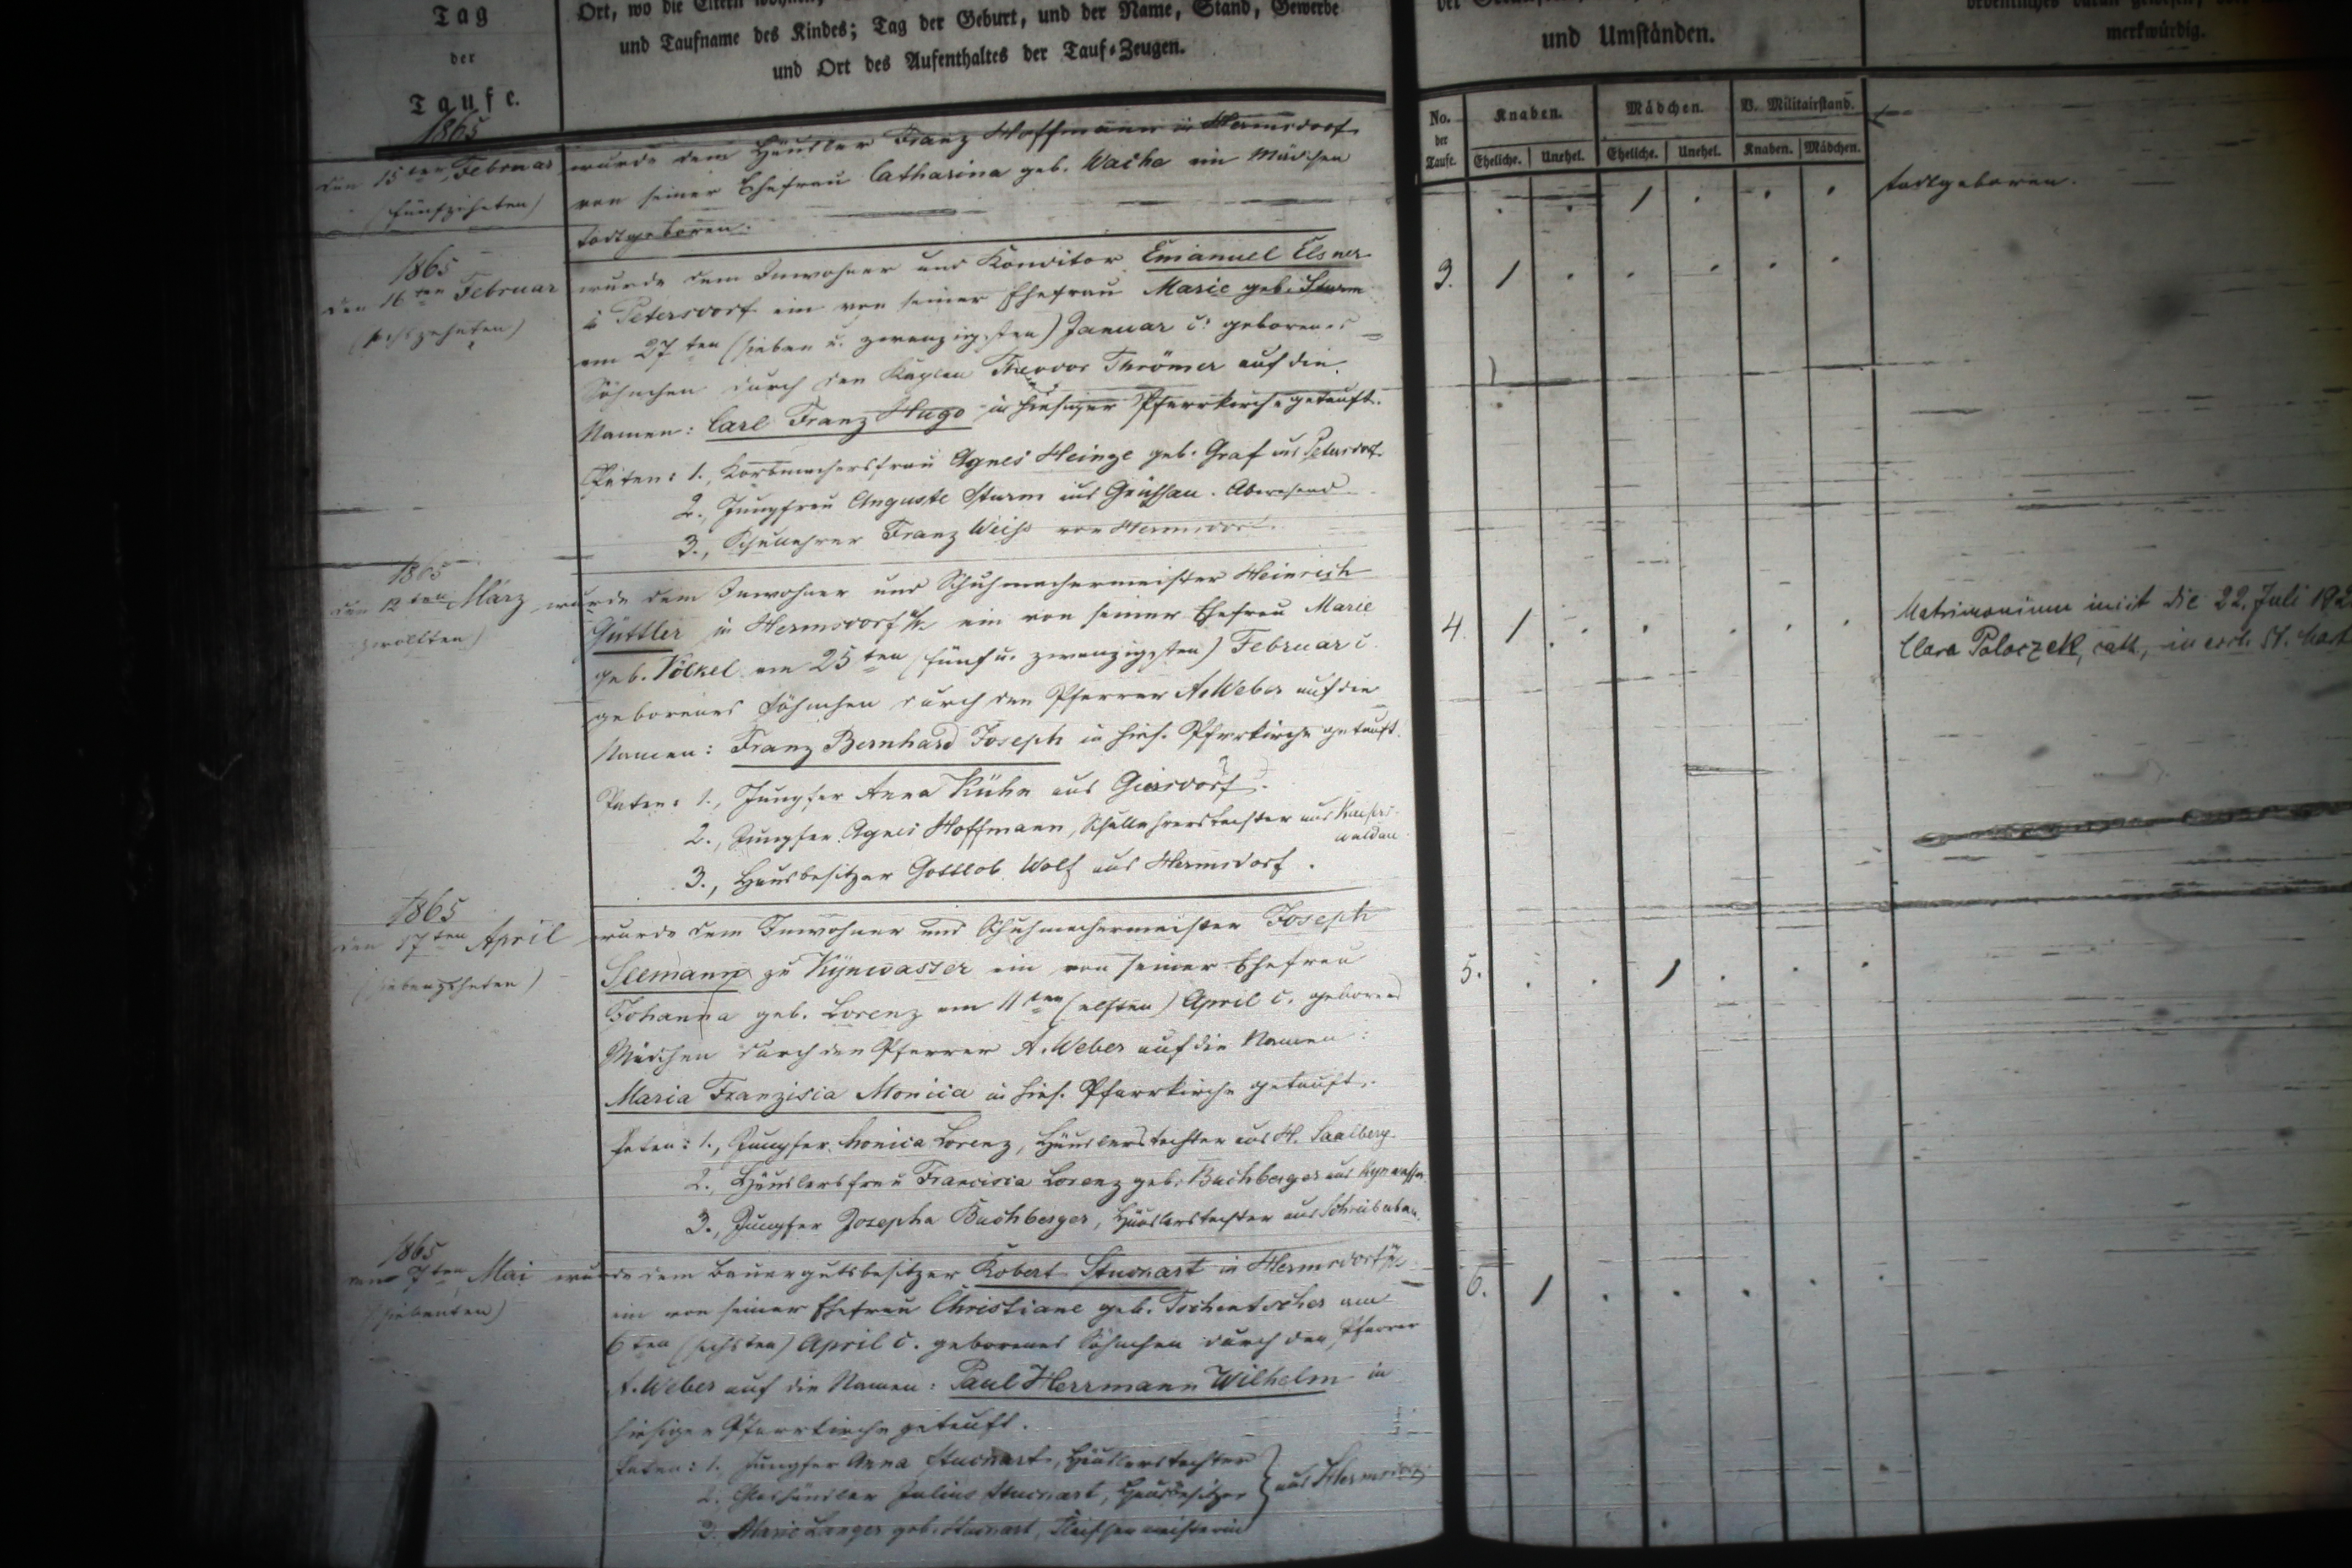 Tag
der
Taufe.
Ort, wo die Eltern wohnen,
und Taufname des Kindes; Tag der Geburt, und der Name, Stand, Gewerbe
und Ort des Aufenthaltes der Tauf-Zeugen.
und Umständen.
merkwürdig.
No. der Taufe.
Knaben.
Mädchen.
V. Militairstand.
Eheliche. Unehel. Eheliche. Unehel. Knaben. Mädchen.
1865
den 15ten Februar
(fünfzehnten)
wurde dem Häusler Franz Hoffmann in Hermsdorf
von seiner Ehefrau Catharina geb. Wache ein Mädchen
todtgeboren.
1
todtgeboren.
1865
den 16ten Februar
(sechszehnten)
wurde dem Inwohner und Konditor Emanuel Elsner
in Petersdorf ein von seiner Ehefrau Marie geb. Sturm
am 27ten (sieben u. zwanzigsten) Januar c. geborenes
Söhnchen durch den Kaplan Theodor Thrömer auf die
Namen: Carl Franz Hugo in hiesiger Pfarrkirche getauft.
Paten: 1., Korbmachersfrau Agnes Heinze geb. Graf aus Petersdorf.
2., Jungfrau Auguste Sturm aus Grüssau. Abwesend
3., Schullehrer Franz Weiss von Hermsdorf.
3. 1
1865
den 12ten März
zwölften)
wurde dem Inwohner und Schuhmachermeister Heinrich
Güttler in Hermsdorf u/K. ein von seiner Ehefrau Marie
geb. Völkel am 25ten (fünf u. zwanzigsten) Februar c.
geborenes Söhnchen durch den Pfarrer A. Weber auf die
Namen: Franz Bernhard Joseph in hies. Pfarrkirche getauft.
Paten: 1., Jungfer Anna Kühn aus Giersdorf.
2., Jungfer Agnes Hoffmann, Schullehrerstochter aus Kaisers-
waldau
3., Hausbesitzer Gottlob Wolf aus Hermsdorf.
4. 1
Matrimonium iniit die 22. Juli 192
Clara Polaczek, cath., in eccl. St.
1865
den 17ten April
(siebenzehnten)
wurde dem Inwohner und Schuhmachermeister Joseph
Seemann zu Kynwasser ein von seiner Ehefrau
Johanna geb. Lorenz am 11ten (elften) April c. geborenes
Mädchen durch den Pfarrer A. Weber auf die Namen:
Maria Franzisca Monica in hies. Pfarrkirche getauft.
Paten: 1., Jungfer Monica Lorenz, Häuslerstochter aus H. Saalberg.
2., Häuslersfrau Francisca Lorenz geb. Buchberger aus Kynwasser.
3., Jungfer Josepha Buchberger, Häuslerstochter aus Schreiberhau.
5. 1
1865
den 7ten Mai
(siebenten)
wurde dem Bauergutsbesitzer Robert in Hermsdorf u/K.
ein von seiner Ehefrau Christiane geb. Tschentscher am
6ten (sechsten) April c. geborenes Söhnchen durch den Pfarrer
A. Weber auf die Namen: Paul Herrmann Wilhelm in
hiesiger Pfarrkirche getauft.
Paten: 1., Jungfer Anna Häuslerstochter
2. Julius Hausbesitzer } aus Hermsdorf
3. Marie Langer geb.
6. 1